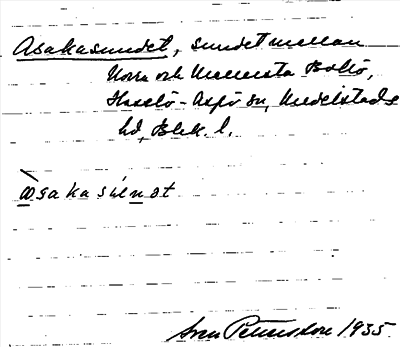 Åsakasundet, sundet mellan
Norra och Mellersta Boköˌ
Hasslö-Aspö sn, Medelstads
hd, Blek. l.
åsakasúenət
Sven Petersson 1935